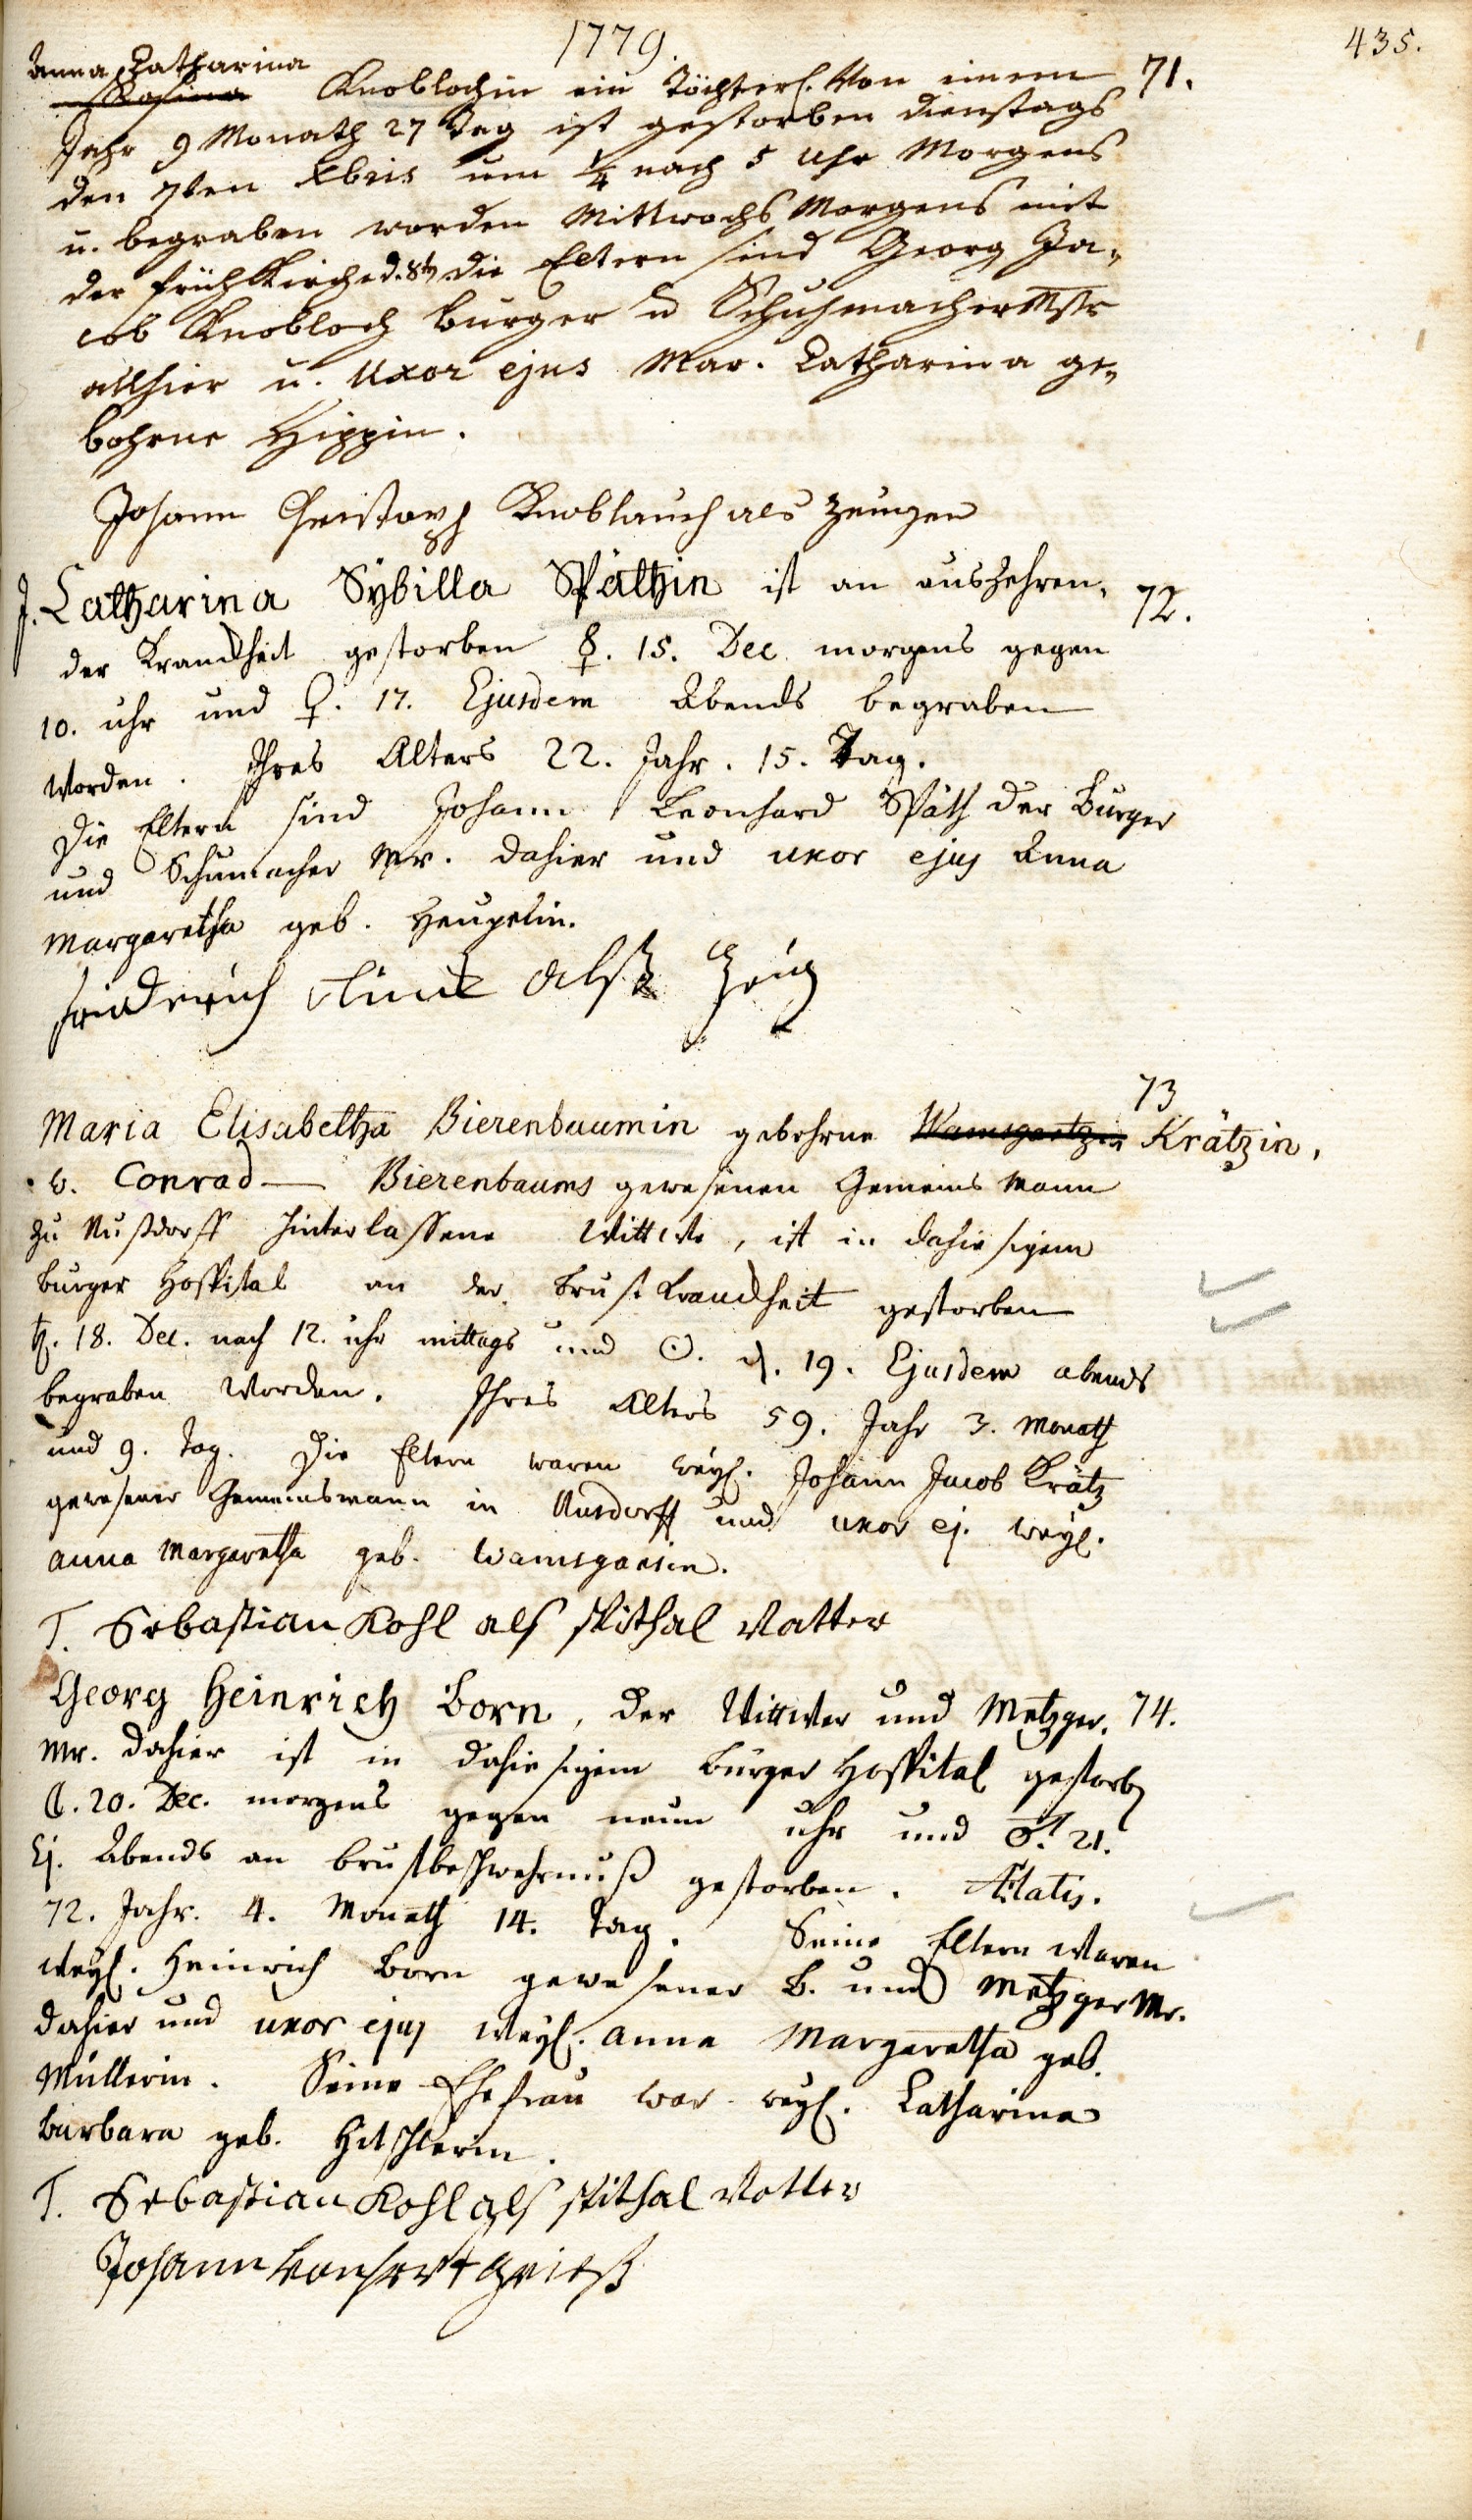 1779.
435.
Anna Catharina
Rosina Knoblochin ein Töchterl. Von einem 71.
Jahr 9 Monath 27 Tag ist gestorben Dienstags
den 7ten Xbris um ¼ nach 5 Uhr Morgens
u. begraben worden Mittwochs Morgens mit
der frühkirche d. 8t. die Eltern sind Georg Ja-
cob Knobloch burger u Schuhmacher Mstr
allhier u. Uxor ejus Mar. Catharina ge-
bohrne Hippin.
Johann Christoph Knoblauch als zeugen
J. Catharina Sÿbilla Späthin ist an auszehren- 72.
der Kranckheit gestorben ☿. 15. Dec. morgens gegen
10. uhr und ♀. 17. Ejusdem Abends begraben
worden. Ihres Alters 22. Jahr. 15. Tag.
Die Eltern sind Johann Leonhard Späth der Burger
und Schumacher Mr. dahier und uxor ejus Anna
Margaretha geb. Heupelin.
Friederich alß Zeug
73
Maria Elisabetha Bierenbaumin gebohrne Wamsgantzin Krätzin,
v. Conrad Bierenbaums gewesenen Gemeins Mann
zu Nußdorff hinterlassene Wittwe, ist in dahiesigem
burger Hospital an der Brust Kranckheit gestorben
♄. 18. Dec. nach 12. uhr mittags und ☉. d. 19. Ejusdem abends
begraben worden. Ihres Alters 59. Jahr 3. Monath
und 9. Tag. Die Eltern waren weyl. Johann Jacob Krätz
gewesener Gemeinsmann in Nusdorff und uxor ej. weyl.
anna Margaretha geb. Wamsgansin.
T. Sebastian Kohl als spithal Vatter
Georg Heinrich Born, der Wittwer und Metzger- 74.
Mr. dahier ist in dahiesigem burger Hospital gestorben
☾. 20. Dec. morgens gegen neun uhr und ♂. 21.
Ej. Abends an brustbeschwehrnuß gestorben. Ætatis.
72. Jahr. 4. Monath 14. Tag. Seine Eltern waren
weyl. Heinrich Born gewesener B. und Metzger Mr.
dahier und uxor ejus weyl. anna Margaretha geb.
Müllerin. Seine Ehefrau war weyl. Catharina
barbara geb. Hitschlerin.
T. Sebastian Kohl als spithal Vatter
Johann